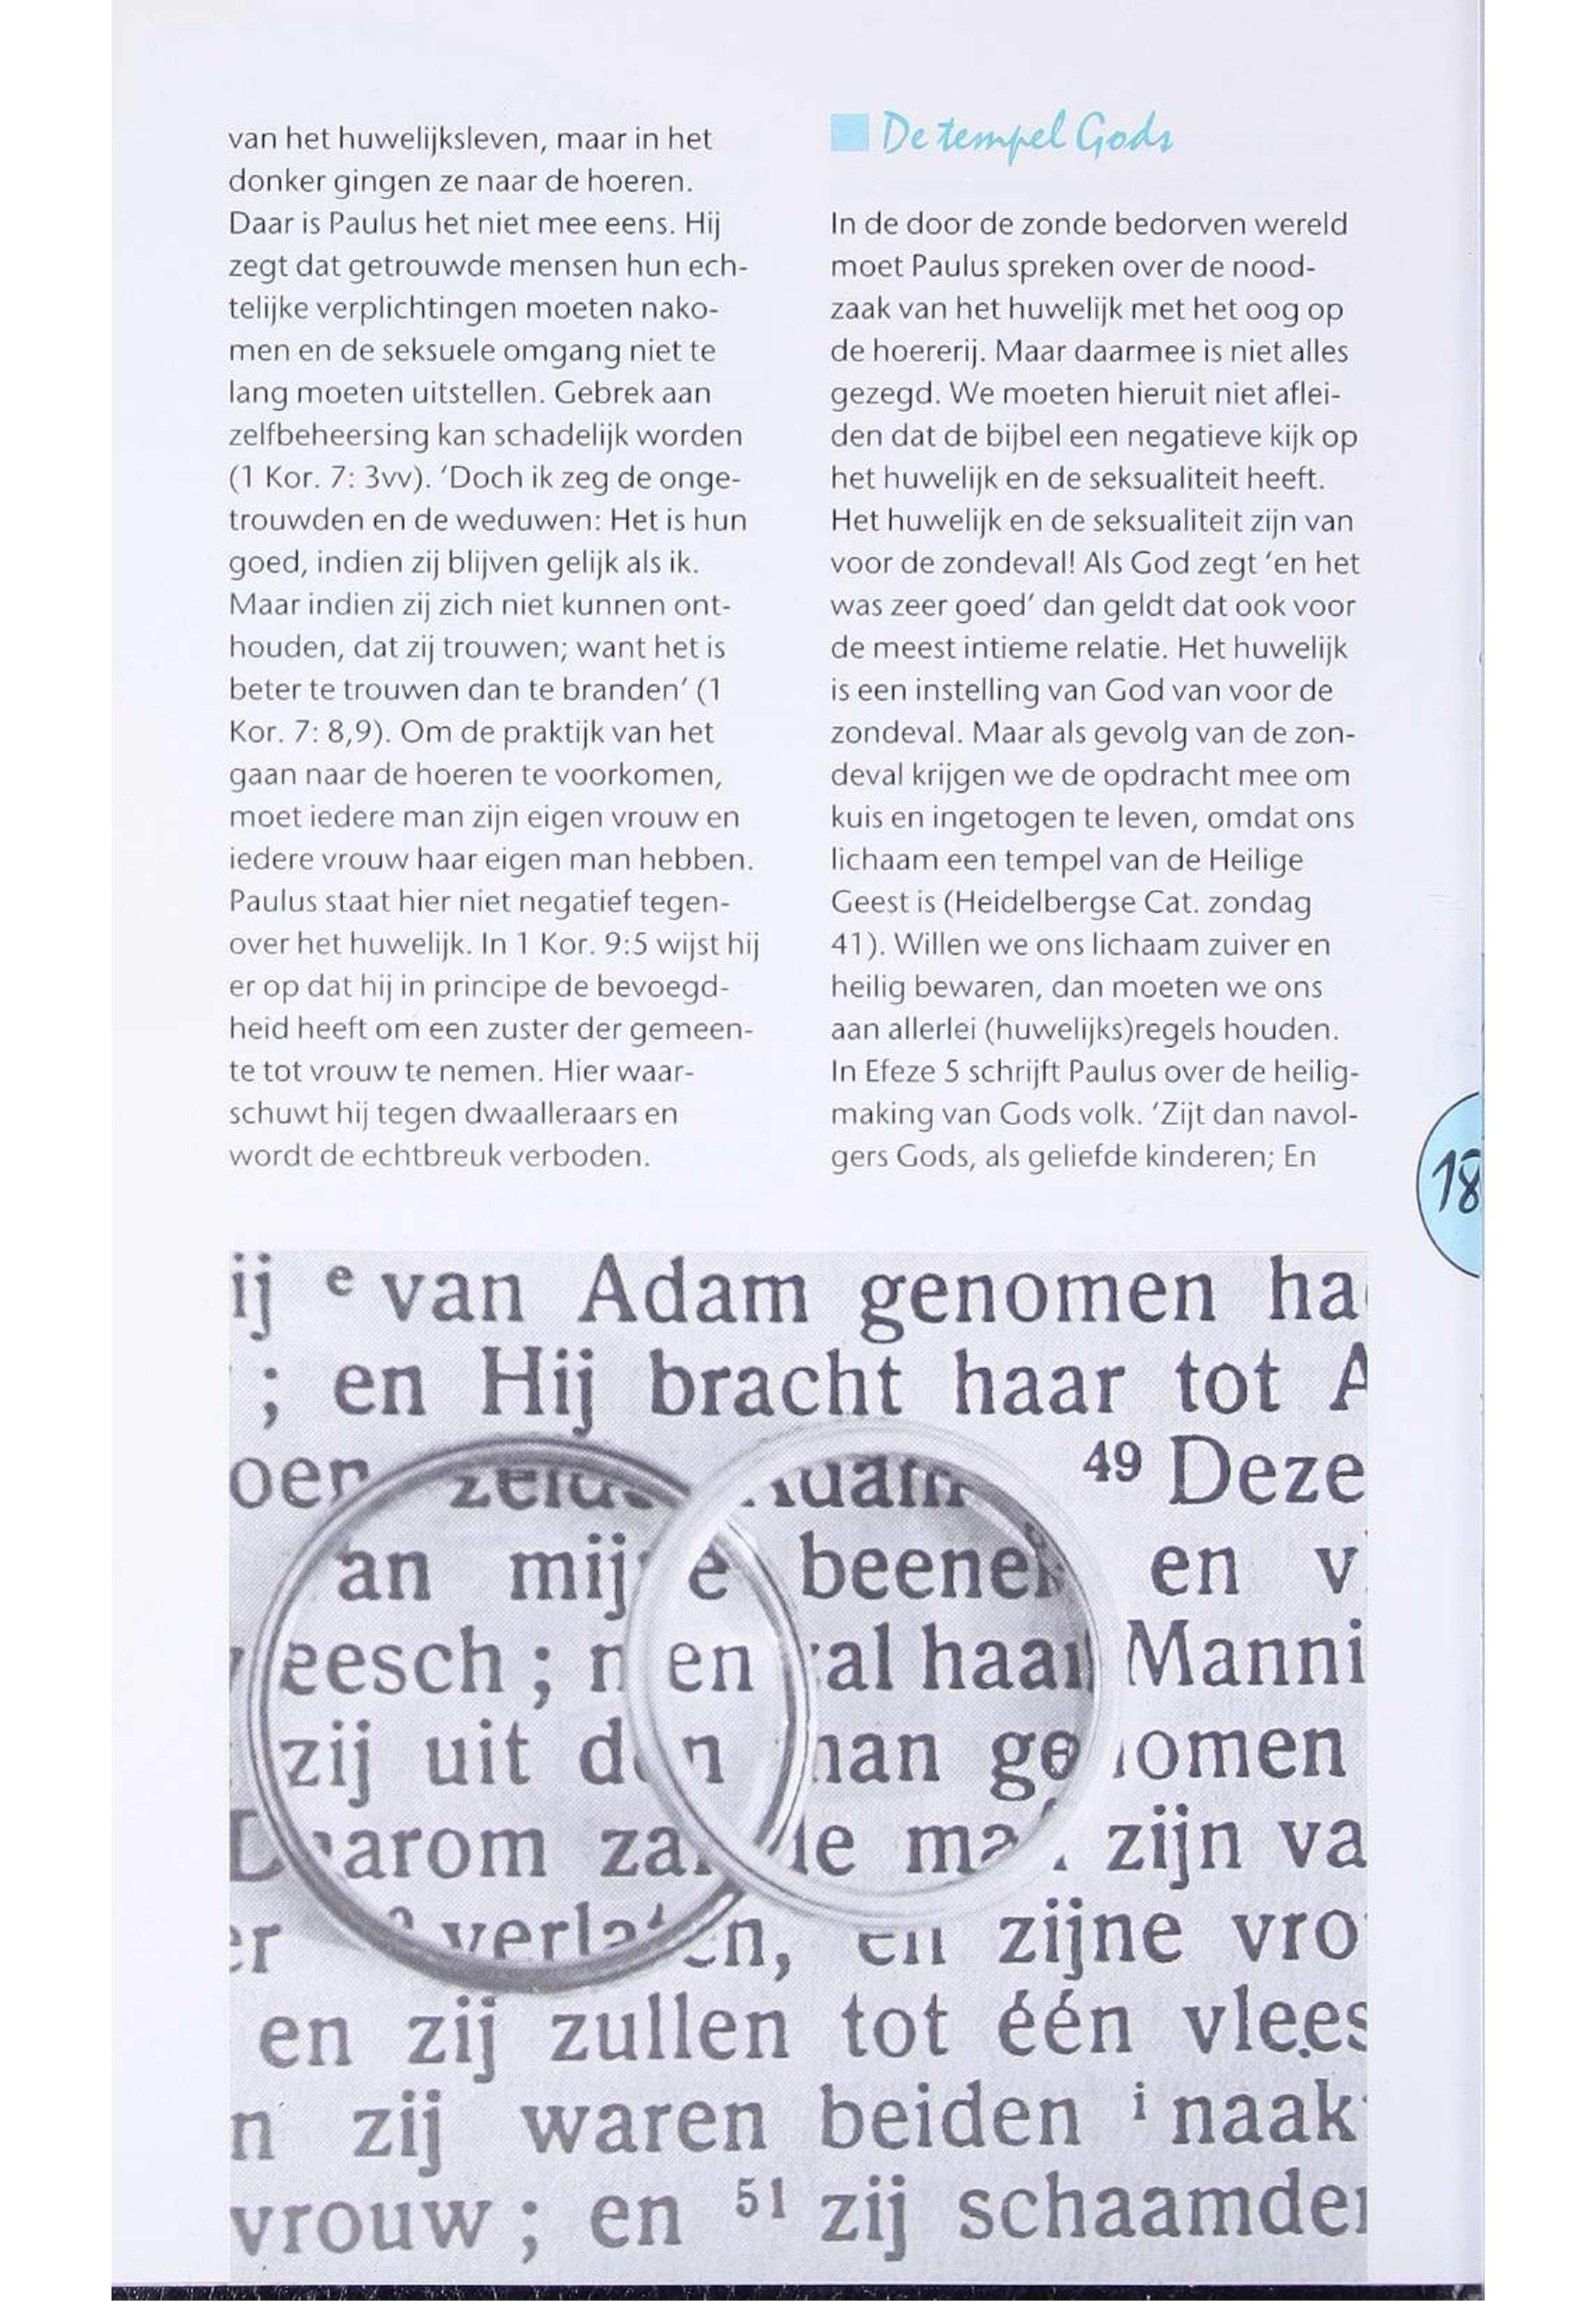 van het huwelijksleven, maar in het
donker gingen ze naar de hoeren.
Daar is Paulus het niet mee eens. Hij
zegt dat getrouwde mensen hun ech-
telijke verplichtingen moeten nako-
men en de seksuele omgang niet te
lang moeten uitstellen. Gebrek aan
zelfbeheersing kan schadelijk worden
(1 Kor. 7: 3vv). ‘Doch ik zeg de onge-
trouwden en de weduwen: Het is hun
goed, indien zij blijven gelijk als ik.
Maar indien zij zich niet kunnen ont-
houden, dat zij trouwen; want het is
beter te trouwen dan te branden’ (1
Kor. 7: 8,9). Om de praktijk van het
gaan naar de hoeren te voorkomen,
moet iedere man zijn eigen vrouw en
iedere vrouw haar eigen man hebben.
Paulus staat hier niet negatief tegen-
over het huwelijk. In 1 Kor. 9:5 wijst hij
er op dat hij in principe de bevoegd-
heid heeft om een zuster der gemeen-
te tot vrouw te nemen. Hier waar-
schuwt hij tegen dwaalleraars en
wordt de echtbreuk verboden.
De tempel Gods
In de door de zonde bedorven wereld
moet Paulus spreken over de nood-
zaak van het huwelijk met het oog op
de hoererij. Maar daarmee is niet alles
gezegd. We moeten hieruit niet aflei-
den dat de bijbel een negatieve kijk op
het huwelijk en de seksualiteit heeft.
Het huwelijk en de seksualiteit zijn van
voor de zondeval! Als God zegt ‘en het
was zeer goed’ dan geldt dat ook voor
de meest intieme relatie. Het huwelijk
is een instelling van God van voor de
zondeval. Maar als gevolg van de zon-
deval krijgen we de opdracht mee om
kuis en ingetogen te leven, omdat ons
lichaam een tempel van de Heilige
Geest is (Heidelbergse Cat. zondag
41). Willen we ons lichaam zuiver en
heilig bewaren, dan moeten we ons
aan allerlei (huwelijks)regels houden.
In Efeze 5 schrijft Paulus over de heilig-
making van Gods volk. ‘Zijt dan navol-
gers Gods, als geliefde kinderen; En
18
ij e van Adam genomen ha
; en Hij bracht haar tot A
49 Deze
an beenen en v
eesch ; en haar Manni
zij uit
zijn va
er zijne vro
en zij zullen tot één vlees
n zij waren beiden i naak
vrouw ; en 51 zij schaamde